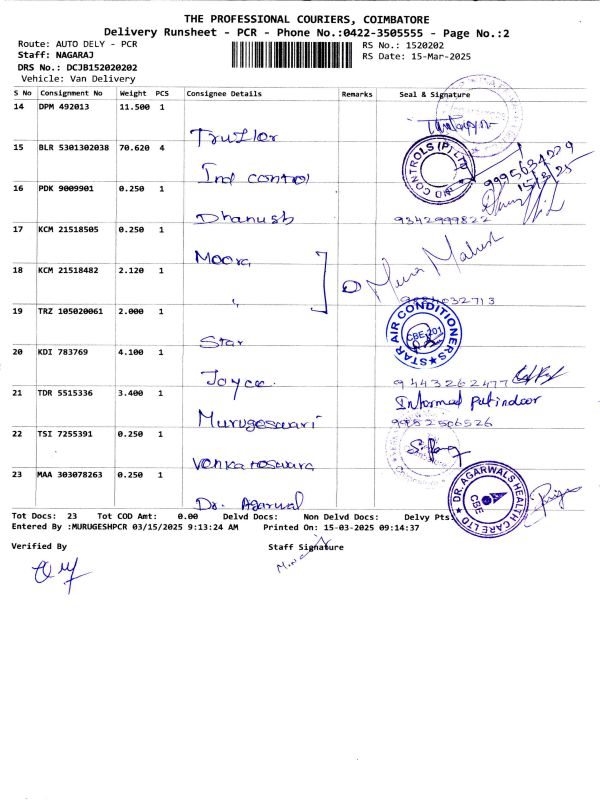 THE PROFESSIONAL COURIERS, COIMBATORE
Delivery Runsheet - PCR - Phone No.:0422-3505555 - Page No.:2
Route: AUTO DELY - PCR
RS No.: 1520202
Staff: NAGARAJ
RS Date: 15-Mar-2025
DRS No.: DCJB152020202
Vehicle: Van Delivery
S No Consignment No Weight PCS Consignee Details Remarks Seal & Signature
14 DPM 492013 11.500 1
15 BLR 5301302038 70.620 4
CONTROLS (P) LTD
Ind control
16 PDK 9009901 0.250 1
Dhanush 9342999822
17 KCM 21518505 0.250 1
18 KCM 21518482 2.120 1
19 TRZ 105020061 2.000 1
STAR AIR CONDITIONERS
Star
20 KDI 783769 4.100 1
9443262477
21 TDR 5515336 3.400 1
Murugeswari
22 TSI 7255391 0.250 1
23 MAA 303078263 0.250 1
DR. AGARWALS HEALTH CARE LTD
CBE
Dr. Agarwal
Tot Docs: 23 Tot COD Amt: 0.00 Delvd Docs: Non Delvd Docs: Delvy Pts
Entered By :MURUGESHPCR 03/15/2025 9:13:24 AM Printed On: 15-03-2025 09:14:37
Verified By Staff Signature